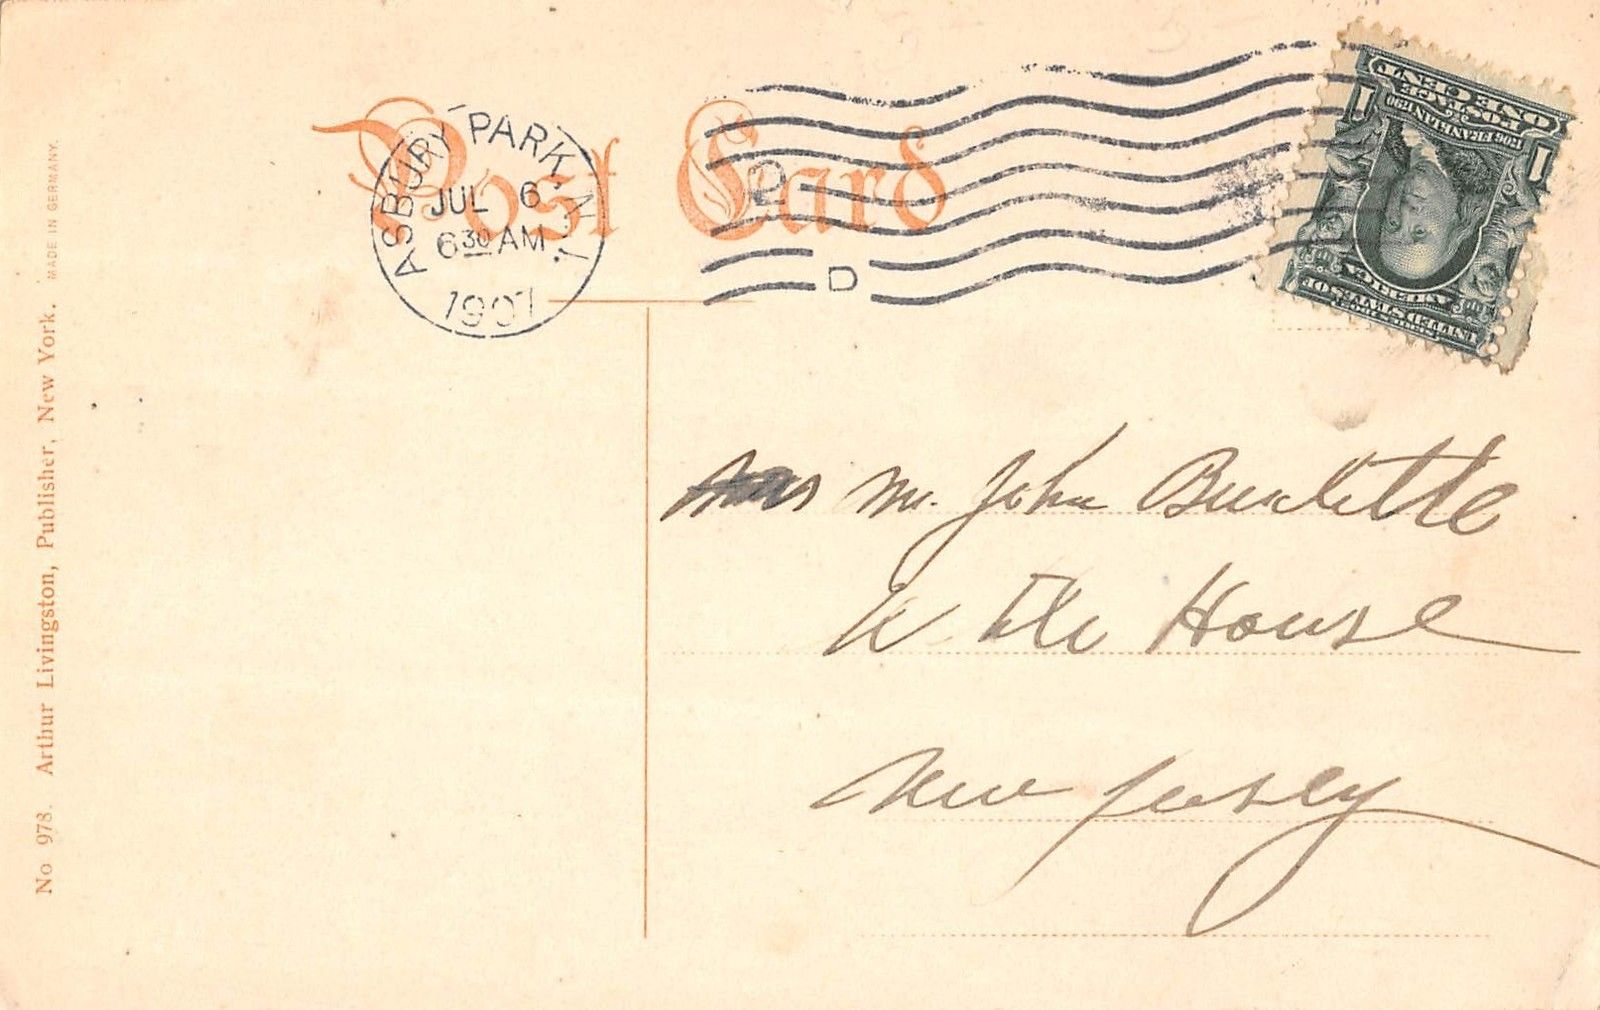 Post Card
ASBURY PARK, N.J.
JUL 6
6 30 AM
1907
D
UNITED STATES OF
AMERICA
FRANKLIN 1790
POSTAGE
ONE CENT
1 1
Mr. John
White House
New Jersey
No 978. Arthur Livingston, Publisher, New York. MADE IN GERMANY.